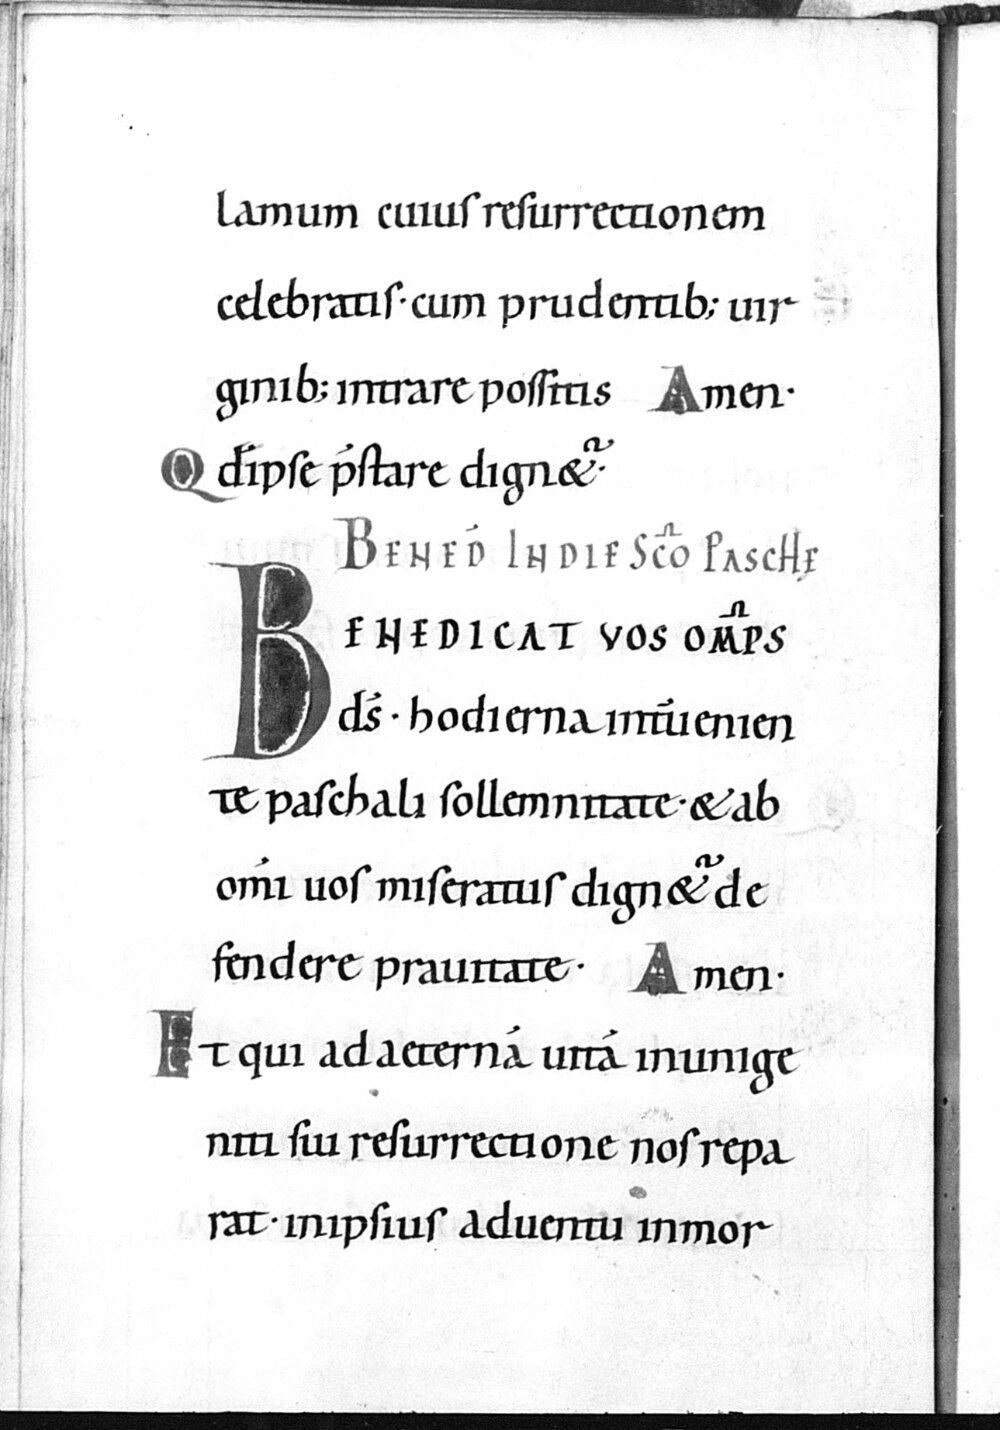 lamum cuiuſ reſurrectionem
celebratiſ· cum prudentib; uir
ginib; intrare poſſitis Amen·
Qd̄ ipſe p̄ſtare dign&ᷓ·
BENED̄ IN DIE SC̄O PASCHĘ
BENEDICAT VOS OM̄PS
dſ̄· hodierna int̄uenien
te paſchali ſollemnitate· & ab
om̄i uoſ miſeratuſ dign&ᷓ de
fendere prauitate· Amen·
Et qui ad aeternā uitā in unige
niti ſui reſurrectione noſ repa
rat· in ipſiuſ aduentu inmor